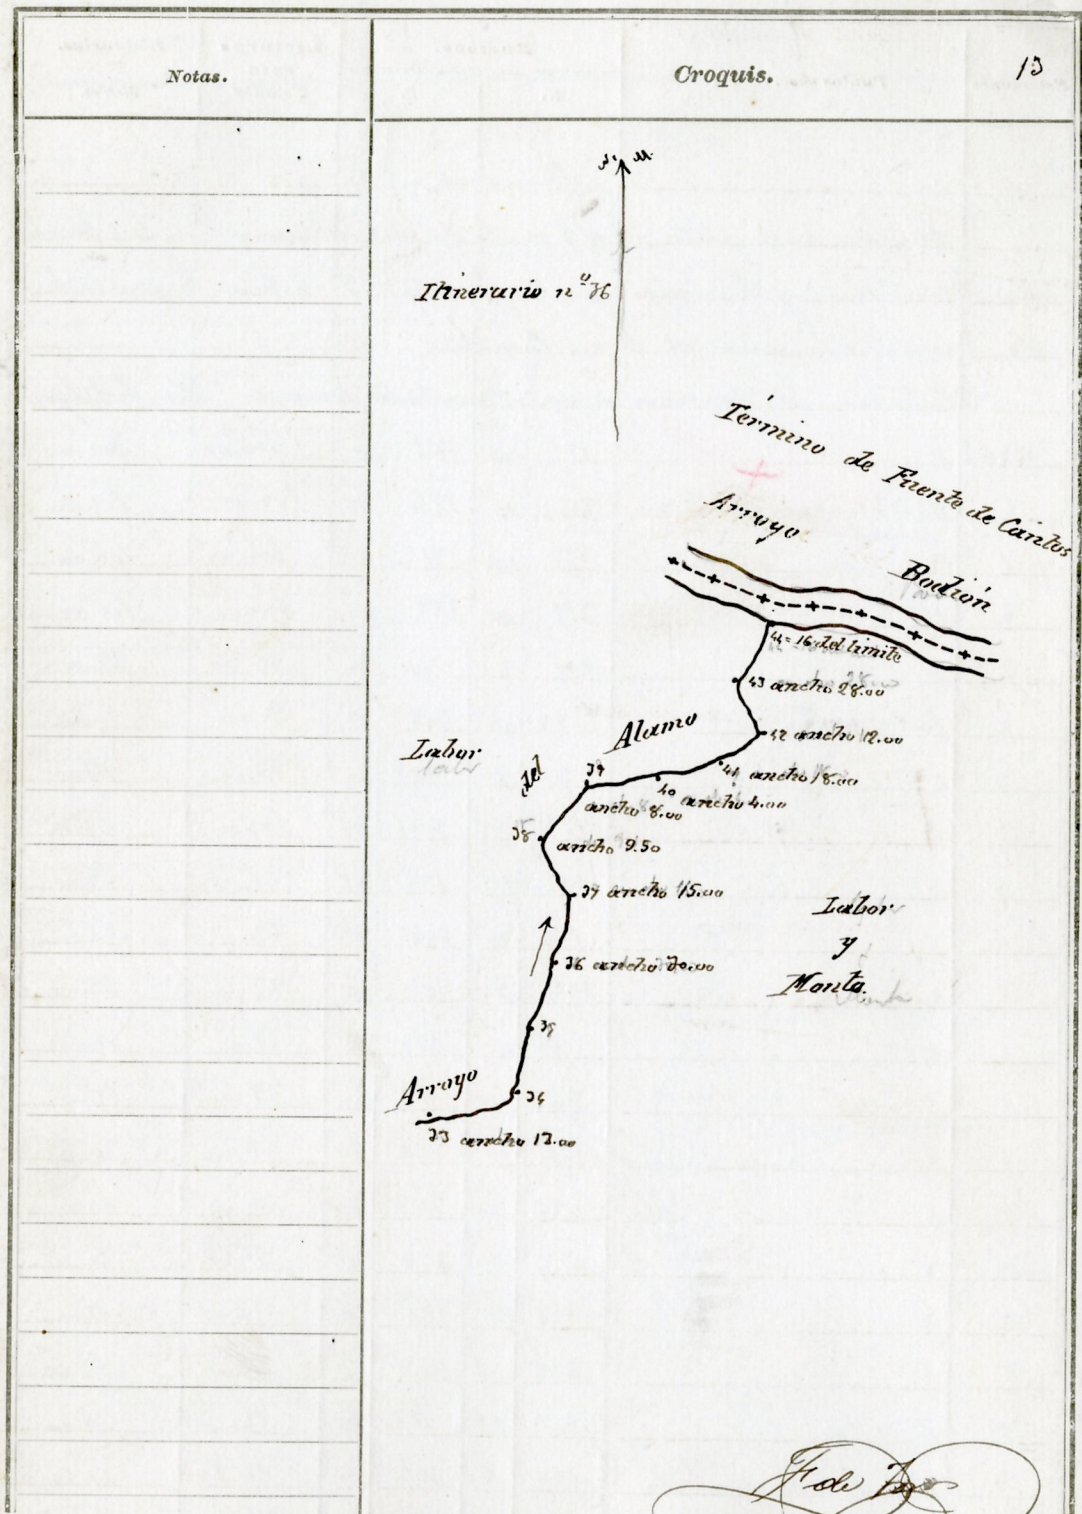 Notas.
Croquis.
13
Itinerario nº 36
Término de Fuente de Cantos
Arroyo
Bodión
44=16 del limite
43 ancho 28.00
42 ancho 12.00
Alamo
Labor
del
39
41 ancho 18.00
40 ancho 4.00
ancho 8.00
38
ancho 9.50
37 ancho 15.00
Labor
y
Monte.
36 ancho 30.00
35
Arroyo
34
33 ancho 13.00
F de